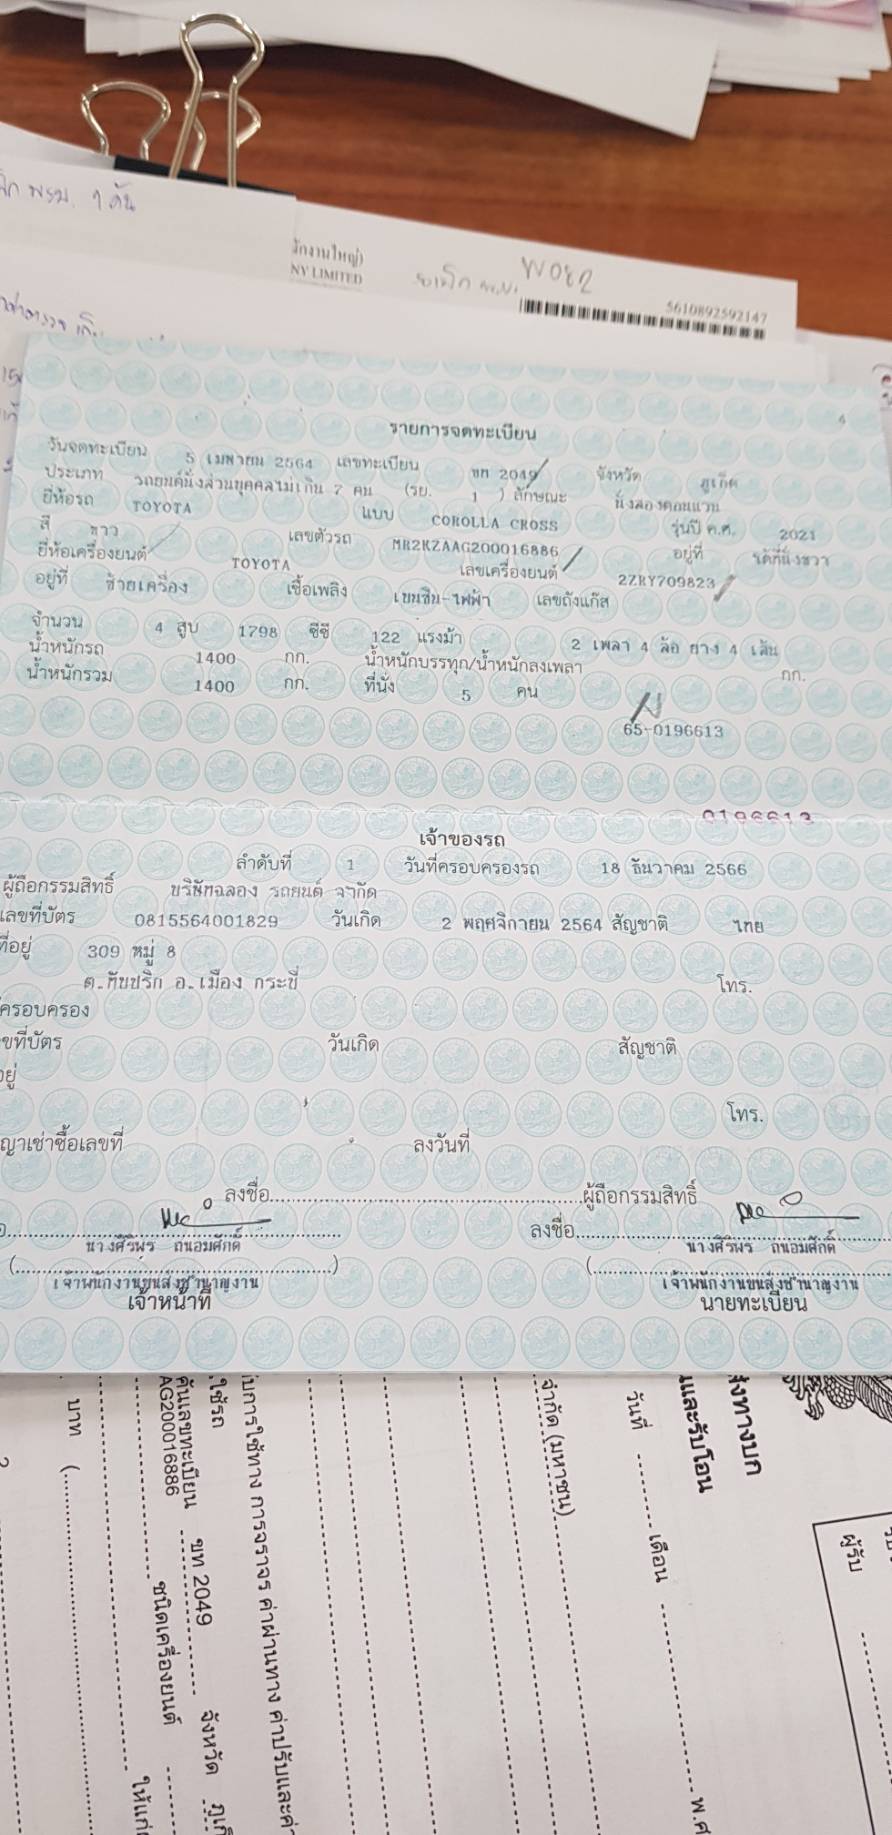 พรม. 1 ต้น
นักงานใหญ่)
NY LIMITED
W082
5610892592147
รายการจดทะเบียน
วันจดทะเบียน 5 เมษายน 2564 เลขทะเบียน ขท 2049 จังหวัด ภูเก็ต
ประเภท รถยนต์นั่งส่วนบุคคลไม่เกิน 7 คน (รย. 1 ) ลักษณะ นั่งสองตอนแวน
ยี่ห้อรถ TOYOTA แบบ COROLLA CROSS รุ่นปี ค.ศ. 2021
สี ขาว เลขตัวรถ MR2KZAAG200016886 อยู่ที่ ใต้ที่นั่งขวา
ยี่ห้อเครื่องยนต์ TOYOTA เลขเครื่องยนต์ 2ZRY709823
อยู่ที่ ซ้ายเครื่อง เชื้อเพลิง เบนซิน-ไฟฟ้า เลขถังแก๊ส
จำนวน 4 สูบ 1798 ซีซี 122 แรงม้า 2 เพลา 4 ล้อ ยาง 4 เส้น
น้ำหนักรถ 1400 กก. น้ำหนักบรรทุก/น้ำหนักลงเพลา กก.
น้ำหนักรวม 1400 กก. ที่นั่ง 5 คน
65-0196613
0196613
เจ้าของรถ
ลำดับที่ 1 วันที่ครอบครองรถ 18 ธันวาคม 2566
ผู้ถือกรรมสิทธิ์ บริษัทฉลอง รถยนต์ จำกัด
เลขที่บัตร 0815564001829 วันเกิด 2 พฤศจิกายน 2564 สัญชาติ ไทย
ที่อยู่ 309 หมู่ 8
ต.ทับปริก อ.เมือง กระบี่ โทร.
ครอบครอง
ขที่บัตร วันเกิด สัญชาติ
อยู่
โทร.
ญาเช่าซื้อเลขที่ ลงวันที่
ลงชื่อ ผู้ถือกรรมสิทธิ์
ลงชื่อ
นางศิริพร ถนอมศักดิ์ นางศิริพร ถนอมศักดิ์
( ) (
เจ้าพนักงานขนส่งชำนาญงาน เจ้าพนักงานขนส่งชำนาญงาน
เจ้าหน้าที่ นายทะเบียน
ส่งทางบก
และรับโอน
วันที่ เดือน พ.ศ
จำกัด (มหาชน)
บการใช้ทาง การจราจร ค่าผ่านทาง ค่าปรับและค่า
ใช้รถ
คันเลขทะเบียน ขท 2049 จังหวัด ภูเก็
AG200016886 ชนิดเครื่องยนต์
ให้แก่
บาท (
ผู้รับ